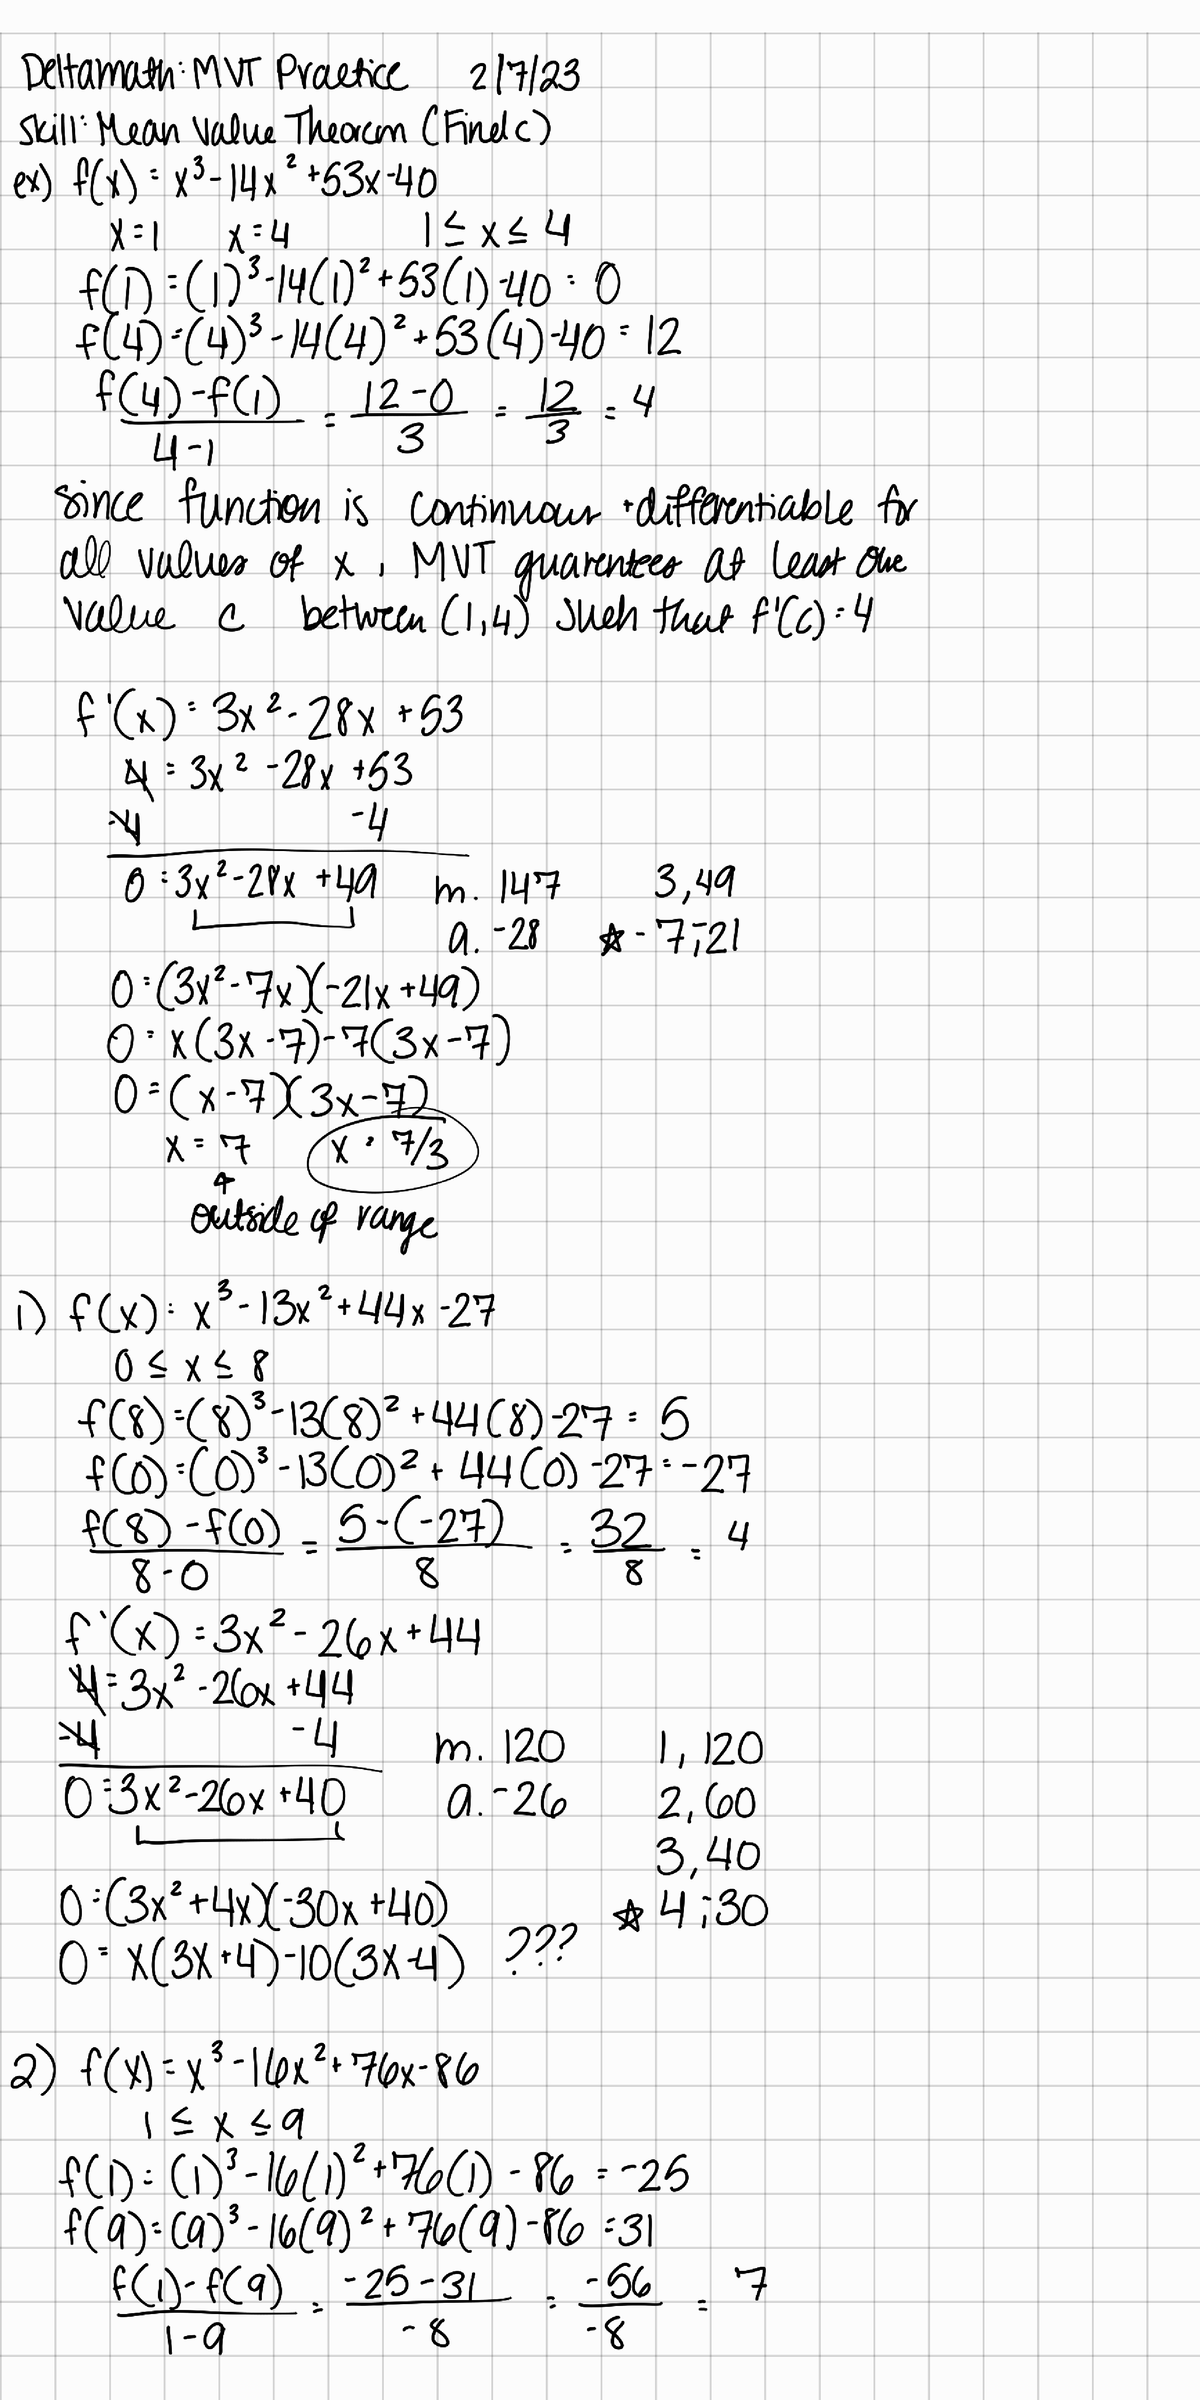 Deltamath: MVT Practice 2/7/23
Skill: Mean Value Theorem (Find c)
ex) f(x) = x³-14x²+53x-40
x=1 x=4 1 ≤ x ≤ 4
f(1) = (1)³-14(1)²+53(1)-40 = 0
f(4) = (4)³-14(4)²+53(4)-40 = 12
f(4)-f(1) / 4-1 = 12-0 / 3 = 12/3 = 4
Since function is continuous + differentiable for
all values of x, MVT guarentees at least one
value c between (1,4) such that f'(c) = 4
f'(x) = 3x²-28x+53
4 = 3x²-28x+53
-4 -4
0 = 3x²-28x+49 m. 147 3,49
a. -28 ☆ -7,-21
0 = (3x²-7x)(-21x+49)
0 = x(3x-7)-7(3x-7)
0 = (x-7)(3x-7)
x = 7 x = 7/3
↑
outside of range
1) f(x) = x³-13x²+44x-27
0 ≤ x ≤ 8
f(8) = (8)³-13(8)²+44(8)-27 = 5
f(0) = (0)³-13(0)²+44(0)-27 = -27
f(8)-f(0) / 8-0 = 5-(-27) / 8 = 32/8 = 4
f'(x) = 3x²-26x+44
4 = 3x²-26x+44
-4 -4 m. 120 1, 120
0 = 3x²-26x+40 a. -26 2,60
3,40
0 = (3x²+4x)(-30x+40) ☆ 4,-30
0 = x(3x+4)-10(3x-4) ???
2) f(x) = x³-16x²+76x-86
1 ≤ x ≤ 9
f(1) = (1)³-16(1)²+76(1)-86 = -25
f(9) = (9)³-16(9)²+76(9)-86 = 31
f(1)-f(9) / 1-9 = -25-31 / -8 = -56/-8 = 7